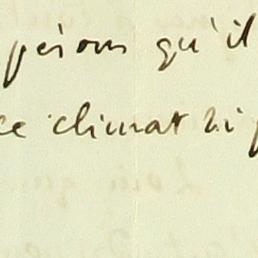 pérons qu'il
ce climat si